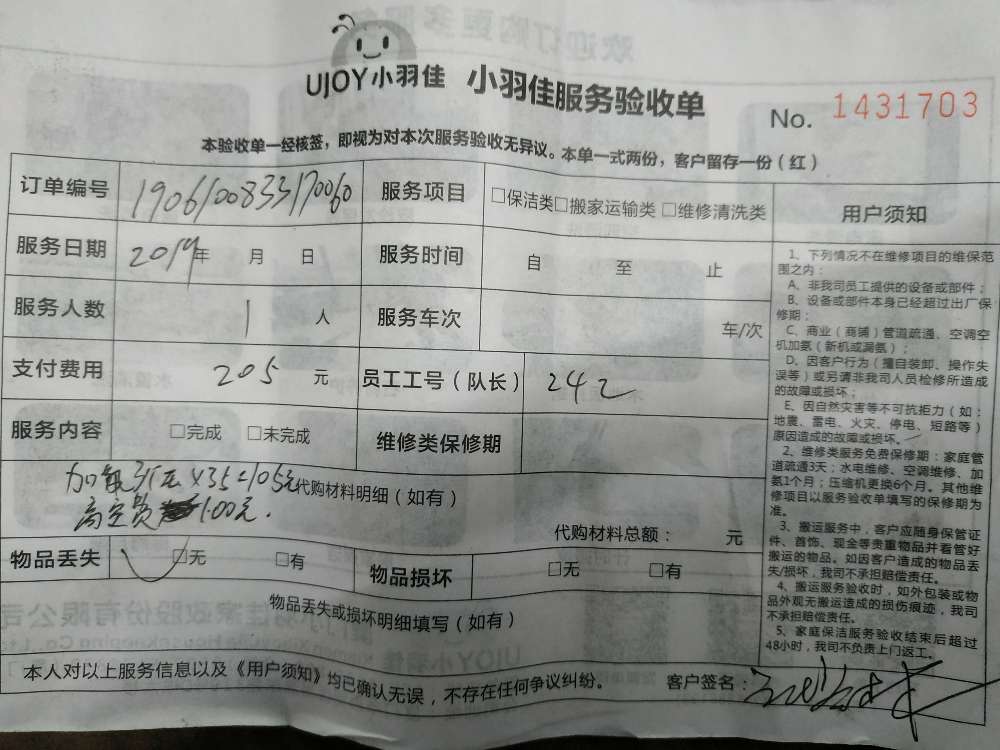 UJOY小羽佳 小羽佳服务验收单
No. 1431703
本验收单一经核签，即视为对本次服务验收无异议。本单一式两份，客户留存一份（红）
订单编号 190610083317 0060 服务项目 □保洁类□搬家运输类 □维修清洗类
服务日期 2019年 月 日 服务时间 自 至 止
服务人数 1 人 服务车次 车/次
支付费用 205 元 员工工号（队长） 242
服务内容 □完成 □未完成 维修类保修期
加氨 ×35=105元 代购材料明细（如有）
高空费 100元.
代购材料总额： 元
物品丢失 □无 □有 物品损坏 □无 □有
物品丢失或损坏明细填写（如有）
本人对以上服务信息以及《用户须知》均已确认无误，不存在任何争议纠纷。 客户签名：
用户须知
1、下列情况不在维修项目的维保范
围之内：
A、非我司员工提供的设备或部件；
B、设备或部件本身已经超过出厂保
修期；
C、商业（商铺）管道疏通、空调空
机加氨（新机或漏氨）；
D、因客户行为（擅自装卸、操作失
误等）或另请非我司人员检修所造成
的故障或损坏；
E、因自然灾害等不可抗拒力（如：
地震、雷电、火灾、停电、短路等）
原因造成的故障或损坏。
2、维修类服务免费保修期：家庭管
道疏通3天；水电维修、空调维修、加
氨1个月；压缩机更换6个月。其他维
修项目以服务验收单填写的保修期为
准。
3、搬运服务中，客户应随身保管证
件、首饰、现金等贵重物品并看管好
搬运的物品。如因客户造成的物品丢
失/损坏，我司不承担赔偿责任。
4、搬运服务验收时，如外包装或物
品外观无搬运造成的损伤痕迹，我司
不承担赔偿责任。
5、家庭保洁服务验收结束后超过
48小时，我司不负责上门返工。